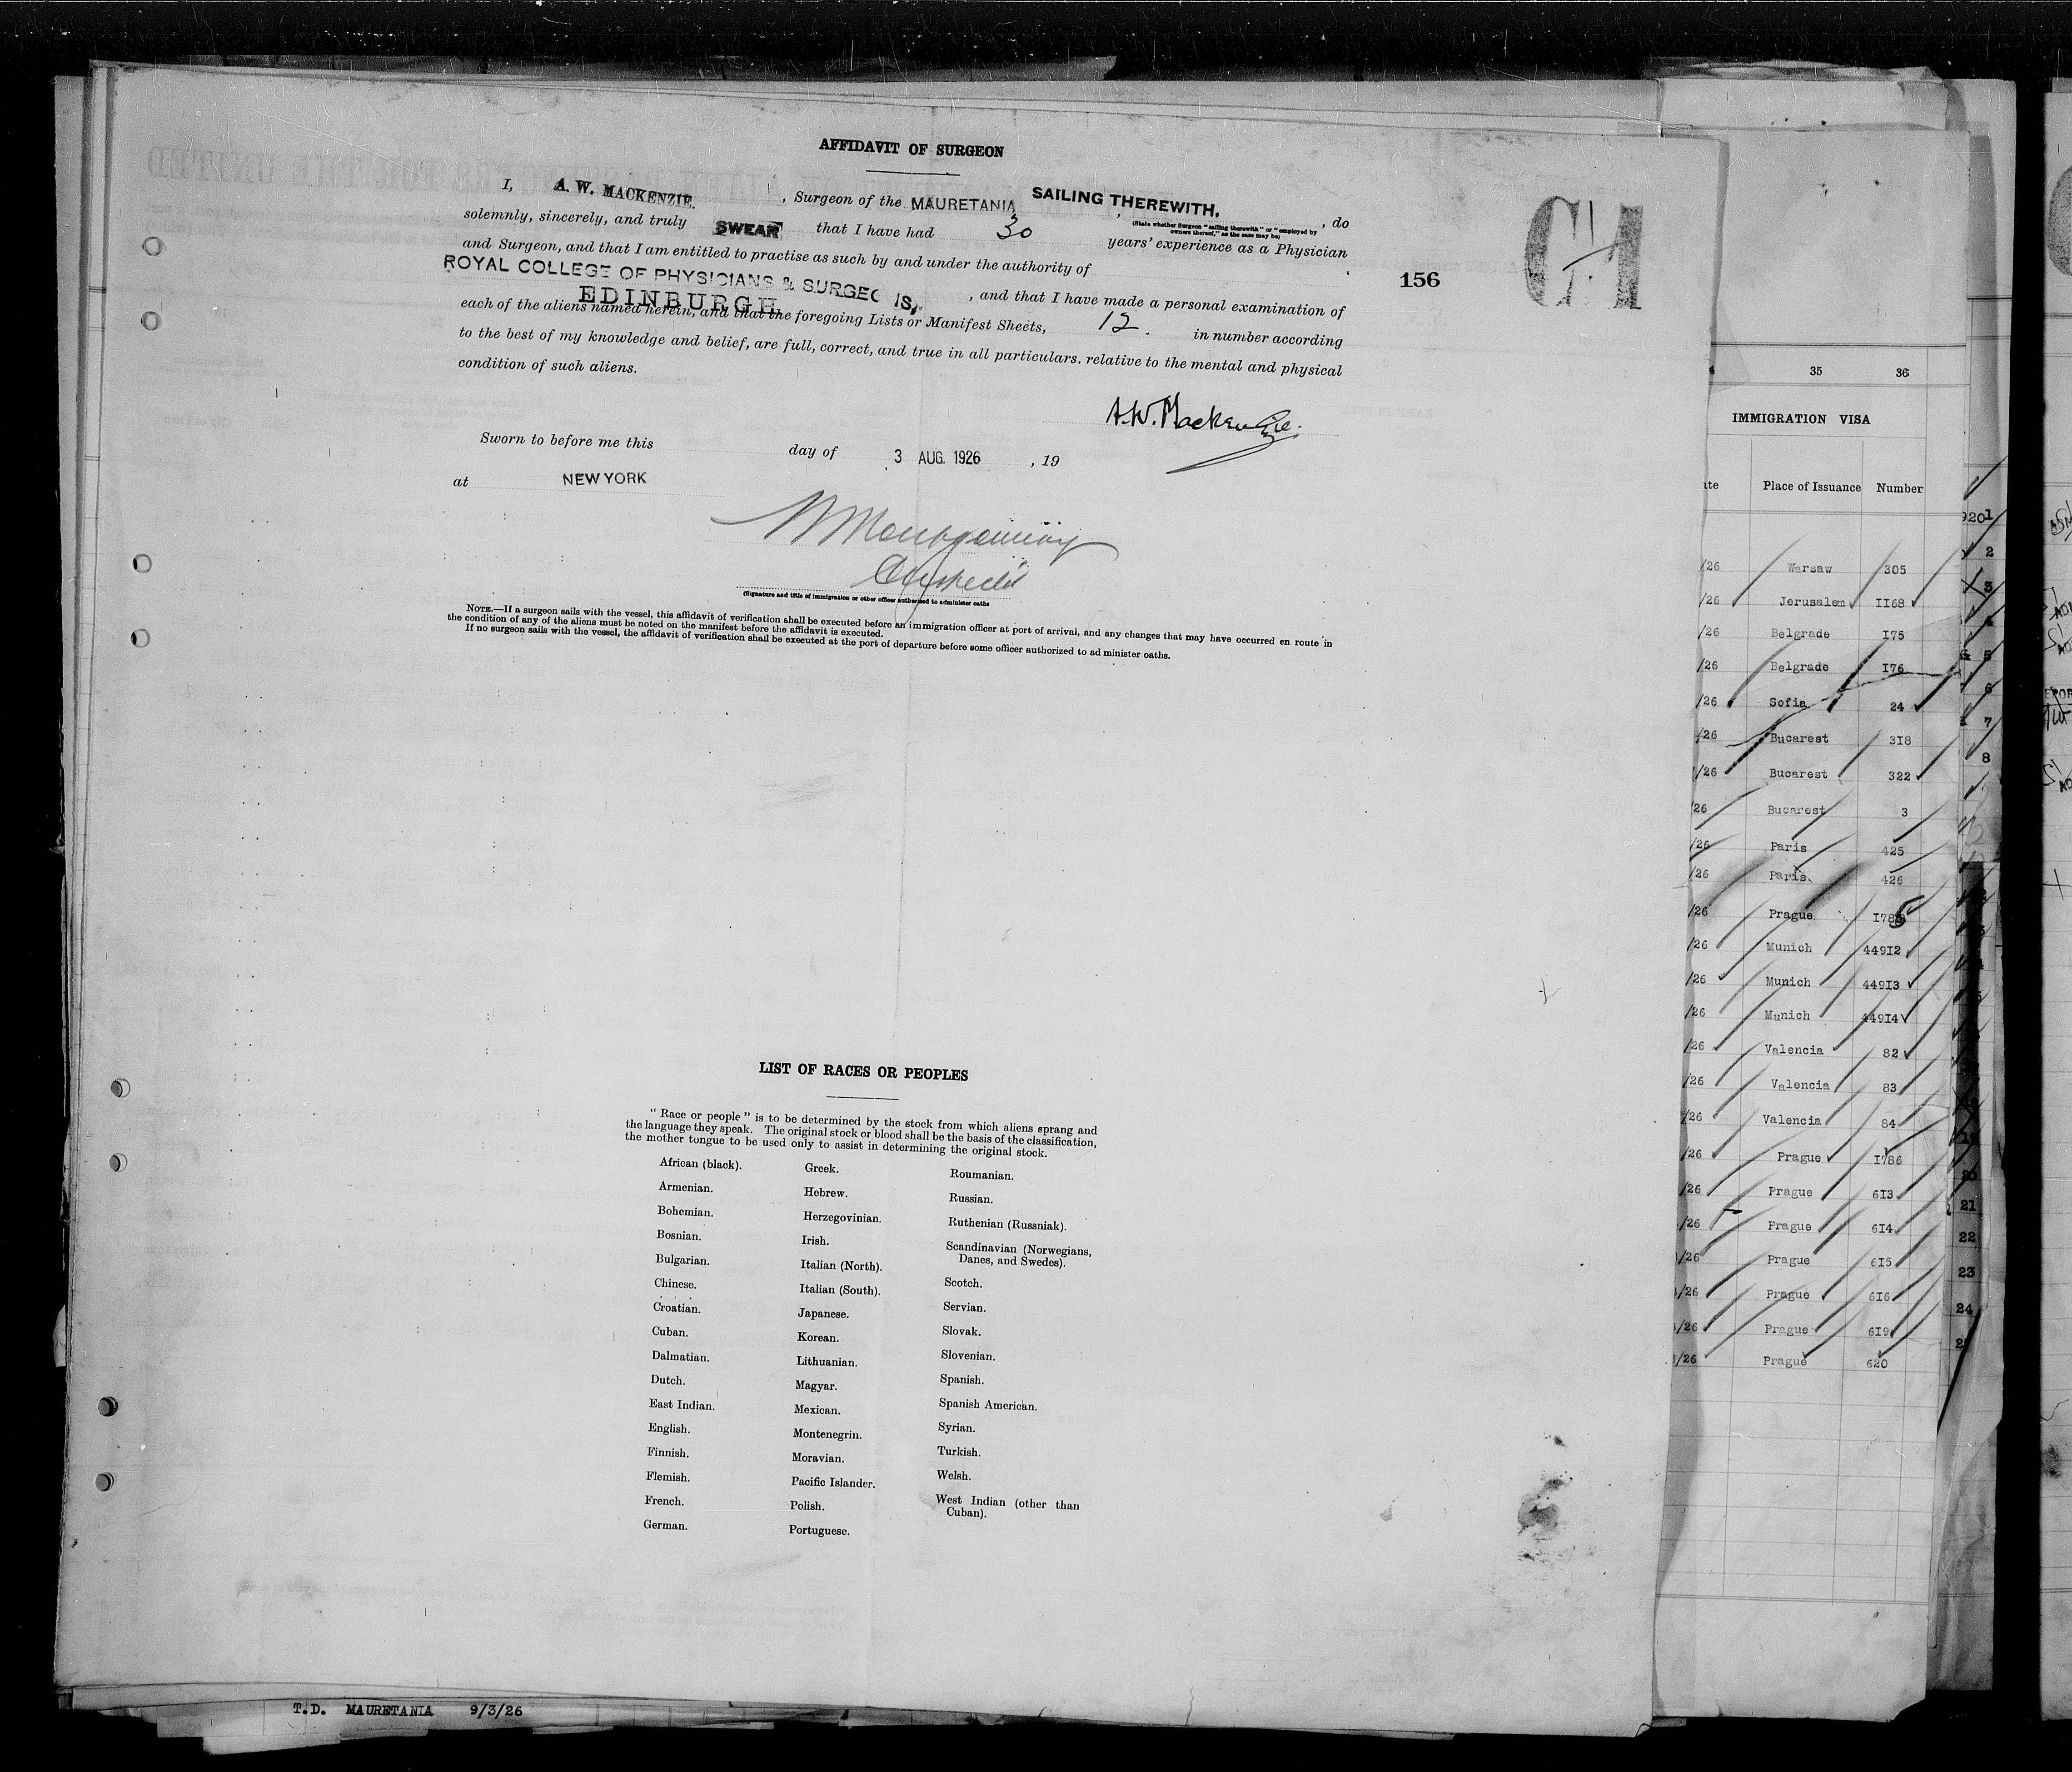 AFFIDAVIT OF SURGEON
I, A. W. MACKENZIE. , Surgeon of the MAURETANIA SAILING THEREWITH, , do
(State whether Surgeon "sailing therewith" or "employed by
owners thereof," as the case may be)
solemnly, sincerely, and truly SWEAR that I have had 30 years' experience as a Physician
and Surgeon, and that I am entitled to practise as such by and under the authority of
ROYAL COLLEGE OF PHYSICIANS & SURGEO NS,
EDINBURGH , and that I have made a personal examination of
each of the aliens named herein, and that the foregoing Lists or Manifest Sheets, 12. in number according
to the best of my knowledge and belief, are full, correct, and true in all particulars. relative to the mental and physical
condition of such aliens.
156
A.W. Mackenzie.
Sworn to before me this day of 3 AUG. 1926 , 19
at NEW YORK
(Signature and title of immigration or other officer authorized to administer oaths
NOTE.—If a surgeon sails with the vessel, this affidavit of verification shall be executed before an immigration officer at port of arrival, and any changes that may have occurred en route in
the condition of any of the aliens must be noted on the manifest before the affidavit is executed.
If no surgeon sails with the vessel, the affidavit of verification shall be executed at the port of departure before some officer authorized to administer oaths.
LIST OF RACES OR PEOPLES
"Race or people" is to be determined by the stock from which aliens sprang and
the language they speak. The original stock or blood shall be the basis of the classification,
the mother tongue to be used only to assist in determining the original stock.
African (black).
Armenian.
Bohemian.
Bosnian.
Bulgarian.
Chinese.
Croatian.
Cuban.
Dalmatian.
Dutch.
East Indian.
English.
Finnish.
Flemish.
French.
German.
Greek.
Hebrew.
Herzegovinian.
Irish.
Italian (North).
Italian (South).
Japanese.
Korean.
Lithuanian.
Magyar.
Mexican.
Montenegrin.
Moravian.
Pacific Islander.
Polish.
Portuguese.
Roumanian.
Russian.
Ruthenian (Russniak).
Scandinavian (Norwegians,
Danes, and Swedes).
Scotch.
Servian.
Slovak.
Slovenian.
Spanish.
Spanish American.
Syrian.
Turkish.
Welsh.
West Indian (other than
Cuban).
T.D. MAURETANIA 9/3/26
35 36
IMMIGRATION VISA
Place of Issuance Number
/26 Warsaw 305
/26 Jerusalem 1168
/26 Belgrade 175
/26 Belgrade 176
/26 Sofia 24
/26 Bucarest 318
/26 Bucarest 322
/26 Bucarest 3
/26 Paris 425
/26 Paris. 426
/26 Prague 1785
/26 Munich 44912
/26 Munich 44913
/26 Munich 44914
/26 Valencia 82
/26 Valencia 83
/26 Valencia 84
/26 Prague 1786
/26 Prague 613
/26 Prague 614
/26 Prague 615
/26 Prague 616
/26 Prague 619
/26 Prague 620
1
2
3
5
6
7
8
20
21
22
23
24